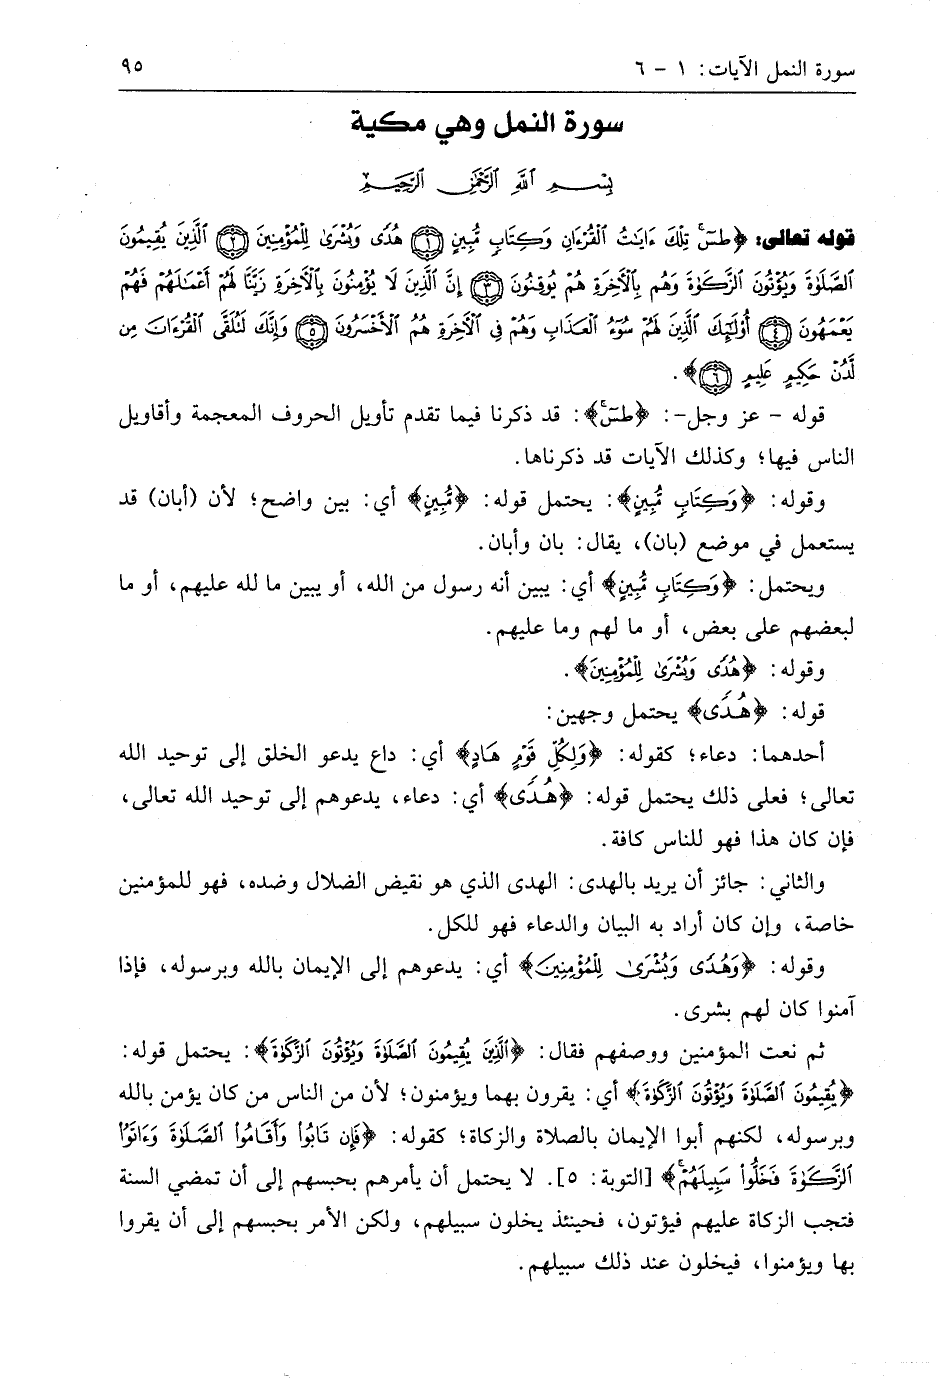 سورة النمل الآيات: ١ - ٦ ٩٥
سورة النمل وهي مكية
بِسْمِ اللَّهِ الرَّحْمَٰنِ الرَّحِيمِ
قوله تعالى: ﴿طسٓۚ تِلْكَ ءَايَٰتُ ٱلْقُرْءَانِ وَكِتَابٍ مُّبِينٍ ۝١ هُدًى وَبُشْرَىٰ لِلْمُؤْمِنِينَ ۝٢ ٱلَّذِينَ يُقِيمُونَ
ٱلصَّلَوٰةَ وَيُؤْتُونَ ٱلزَّكَوٰةَ وَهُم بِٱلْأَخِرَةِ هُمْ يُوقِنُونَ ۝٣ إِنَّ ٱلَّذِينَ لَا يُؤْمِنُونَ بِٱلْأَخِرَةِ زَيَّنَّا لَهُمْ أَعْمَٰلَهُمْ فَهُمْ
يَعْمَهُونَ ۝٤ أُوْلَٰٓئِكَ ٱلَّذِينَ لَهُمْ سُوٓءُ ٱلْعَذَابِ وَهُمْ فِى ٱلْأَخِرَةِ هُمُ ٱلْأَخْسَرُونَ ۝٥ وَإِنَّكَ لَتُلَقَّى ٱلْقُرْءَانَ مِن
لَّدُنْ حَكِيمٍ عَلِيمٍ ۝٦﴾.
قوله - عز وجل-: ﴿طسٓۚ﴾: قد ذكرنا فيما تقدم تأويل الحروف المعجمة وأقاويل
الناس فيها؛ وكذلك الآيات قد ذكرناها.
وقوله: ﴿وَكِتَابٍ مُّبِينٍ﴾: يحتمل قوله: ﴿مُّبِينٍ﴾ أي: بين واضح؛ لأن (أبان) قد
يستعمل في موضع (بان)، يقال: بان وأبان.
ويحتمل: ﴿وَكِتَابٍ مُّبِينٍ﴾ أي: يبين أنه رسول من الله، أو يبين ما لله عليهم، أو ما
لبعضهم على بعض، أو ما لهم وما عليهم.
وقوله: ﴿هُدًى وَبُشْرَىٰ لِلْمُؤْمِنِينَ﴾.
قوله: ﴿هُدًى﴾ يحتمل وجهين:
أحدهما: دعاء؛ كقوله: ﴿وَلِكُلِّ قَوْمٍ هَادٍ﴾ أي: داع يدعو الخلق إلى توحيد الله
تعالى؛ فعلى ذلك يحتمل قوله: ﴿هُدًى﴾ أي: دعاء، يدعوهم إلى توحيد الله تعالى،
فإن كان هذا فهو للناس كافة.
والثاني: جائز أن يريد بالهدى: الهدى الذي هو نقيض الضلال وضده، فهو للمؤمنين
خاصة، وإن كان أراد به البيان والدعاء فهو للكل.
وقوله: ﴿وَهُدًى وَبُشْرَىٰ لِلْمُؤْمِنِينَ﴾ أي: يدعوهم إلى الإيمان بالله وبرسوله، فإذا
آمنوا كان لهم بشرى.
ثم نعت المؤمنين ووصفهم فقال: ﴿ٱلَّذِينَ يُقِيمُونَ ٱلصَّلَوٰةَ وَيُؤْتُونَ ٱلزَّكَوٰةَ﴾: يحتمل قوله:
﴿يُقِيمُونَ ٱلصَّلَوٰةَ وَيُؤْتُونَ ٱلزَّكَوٰةَ﴾ أي: يقرون بهما ويؤمنون؛ لأن من الناس من كان يؤمن بالله
وبرسوله، لكنهم أبوا الإيمان بالصلاة والزكاة؛ كقوله: ﴿فَإِن تَابُوا۟ وَأَقَامُوا۟ ٱلصَّلَوٰةَ وَءَاتَوُا۟
ٱلزَّكَوٰةَ فَخَلُّوا۟ سَبِيلَهُمْۚ﴾ [التوبة: ٥]. لا يحتمل أن يأمرهم بحبسهم إلى أن تمضي السنة
فتجب الزكاة عليهم فيؤتون، فحينئذ يخلون سبيلهم، ولكن الأمر بحبسهم إلى أن يقروا
بها ويؤمنوا، فيخلون عند ذلك سبيلهم.